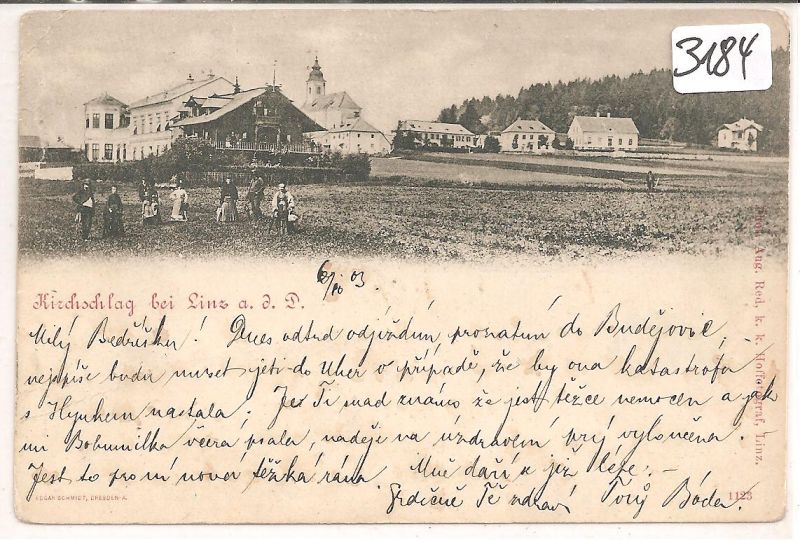 3184
6/10 03.
Kirchschlag bei Linz a. d. D.
Milý Bedříšku! Dnes odtud odjíždím prozatím do Budějovic,
nejspíše budu muset jeti do Uher v případě, že by ona katastrofa
s Hynkem nastala. Jest Ti snad známo že jest těžce nemocen a jak
mi Bohumilka včera psala, naděje na úzdravení prý vyloučena.
Jest to pro mě nová těžká rána. Mně daří se již lépe. –
Srdečně Tě zdraví Tvůj Bóda.
EDGAR SCHMIDT, DRESDEN-A.
1123
Aug. Red, k. k. Hoffotograf, Linz.